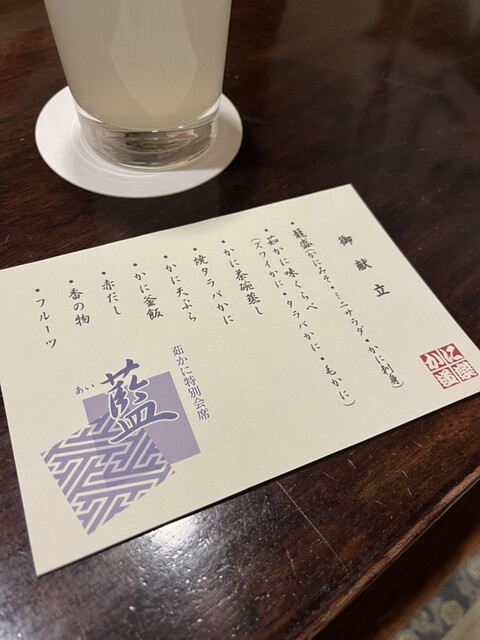 御献立
・籠盛(かにみそ・ミニサラダ・かに刺身)
・茹かに味くらべ
(ズワイかに・タラバかに・毛かに)
・かに茶碗蒸し
・焼タラバかに
・かに天ぷら
・かに釜飯
・赤だし
・香の物
・フルーツ
茹かに特別会席
藍
あい
かに道楽